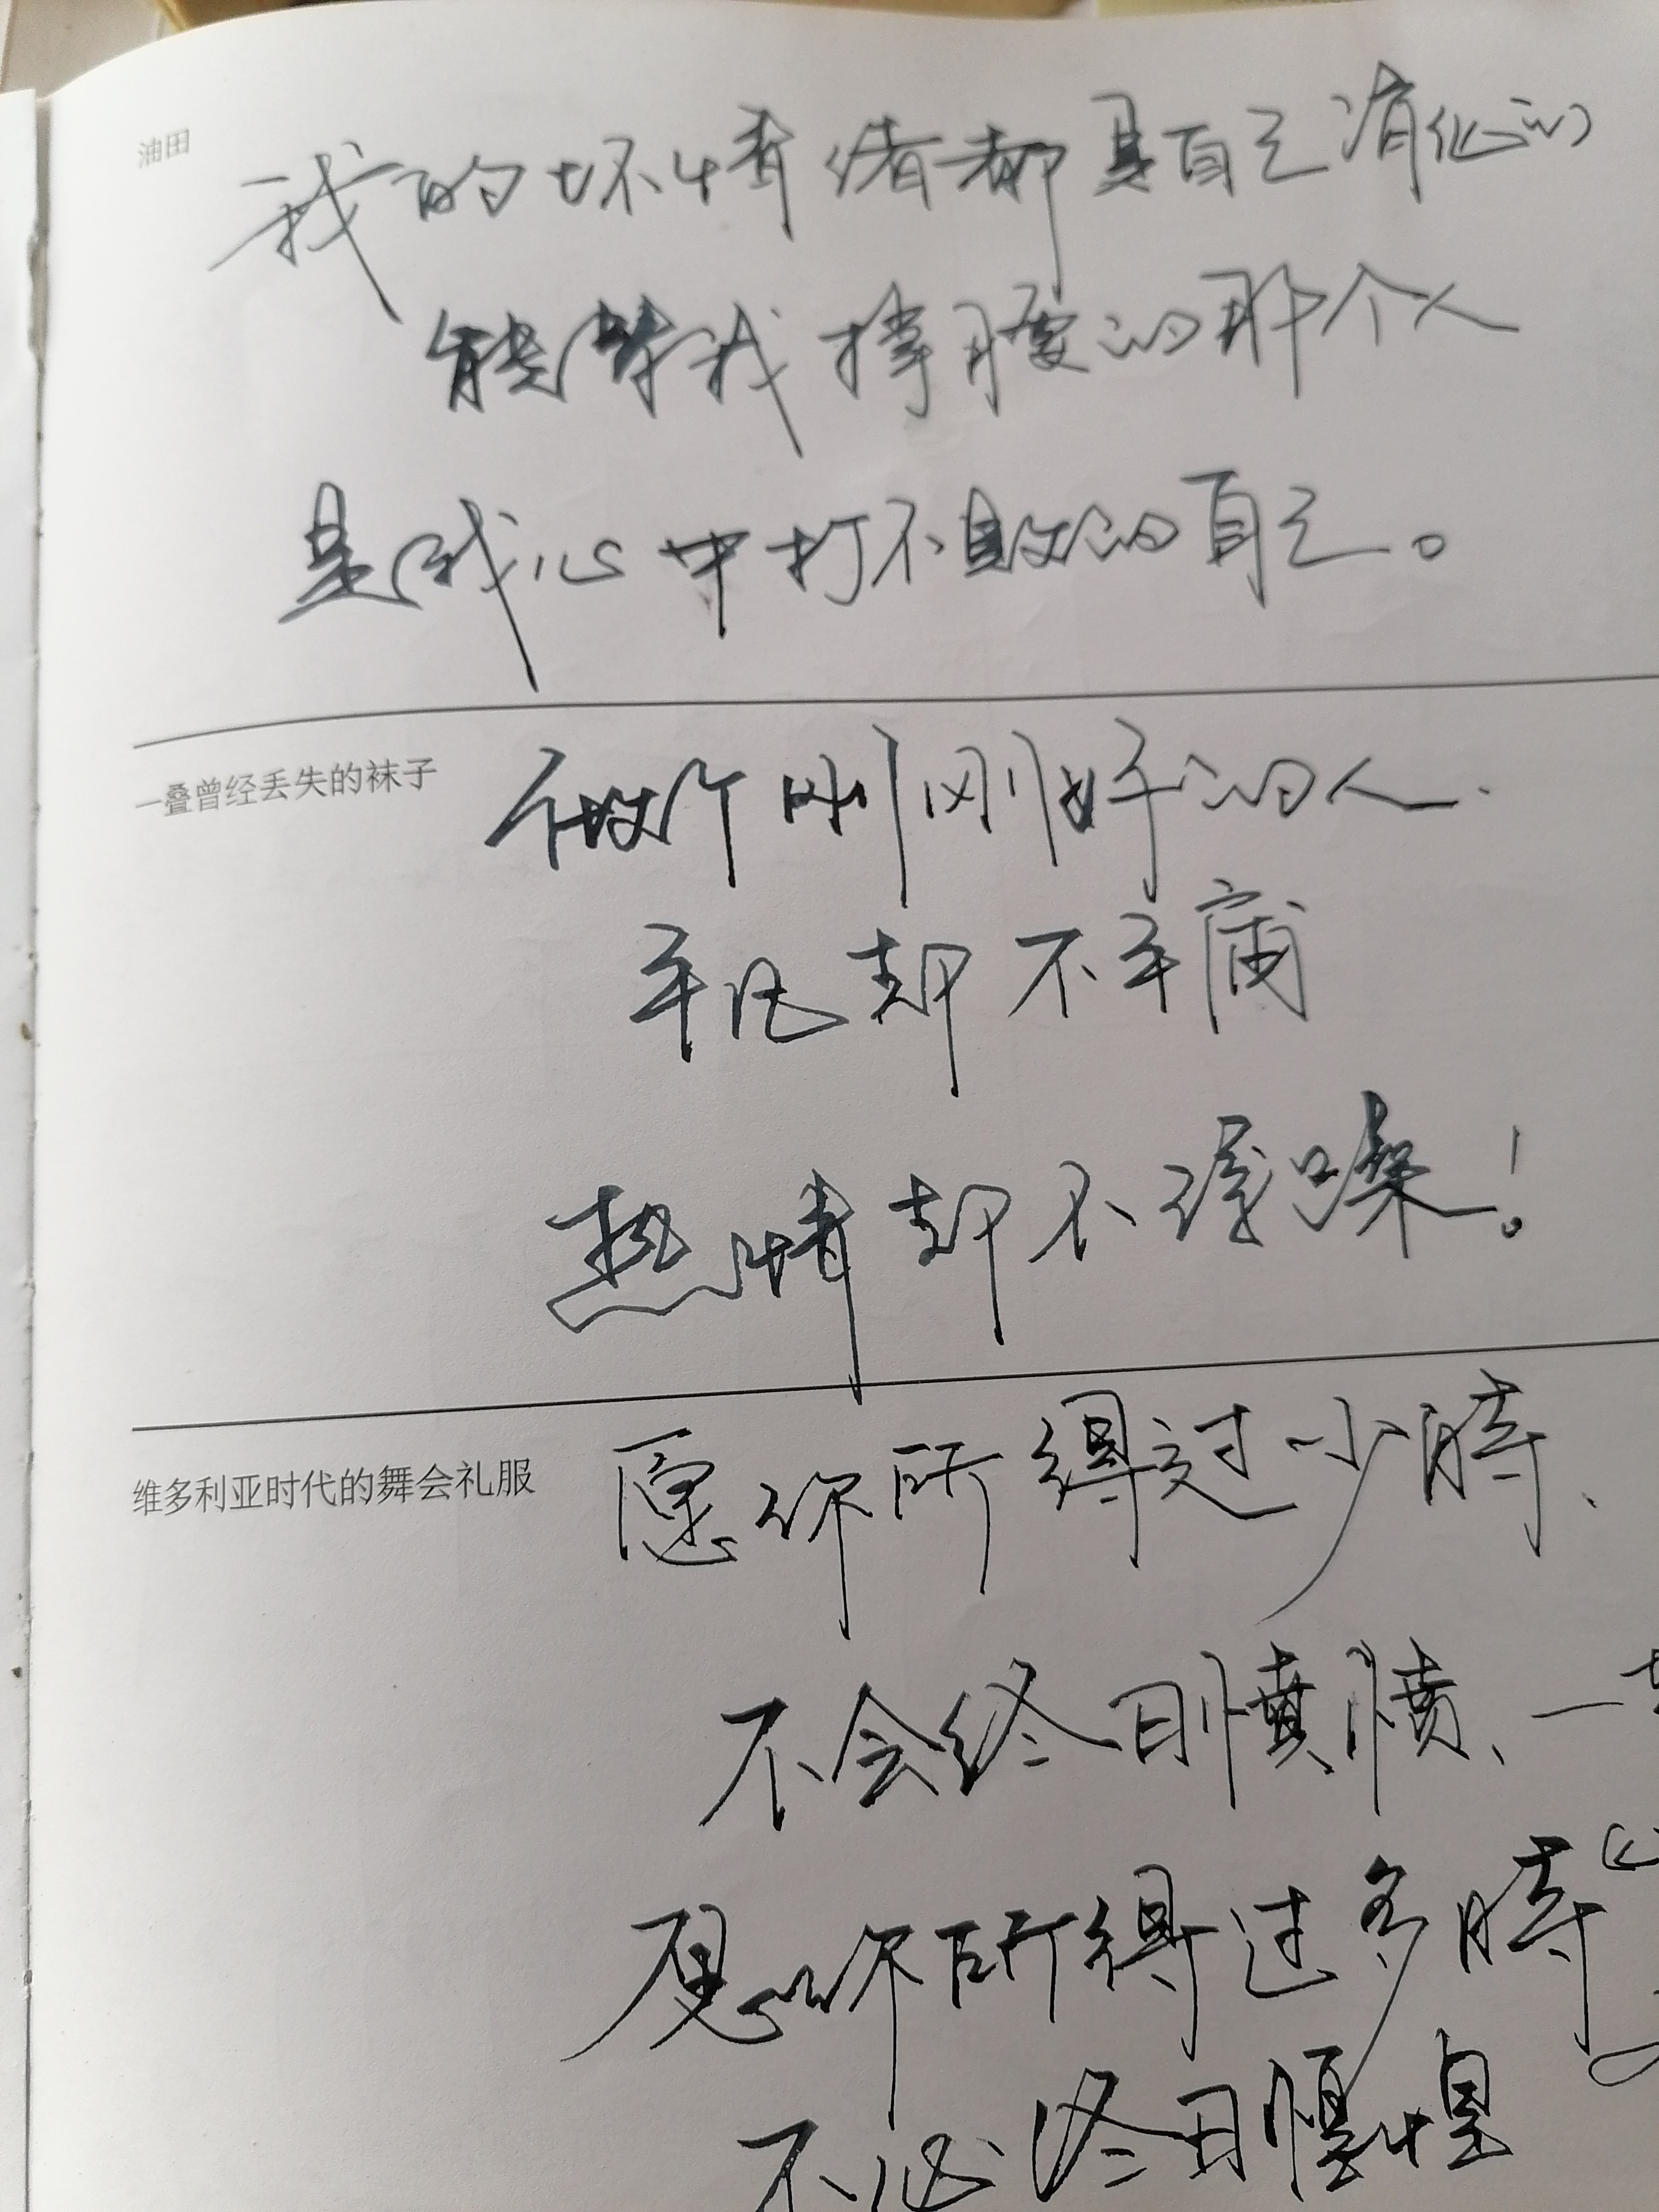 油田
我的坏情绪都是自己消化的
能替我撑腰的那个人
是我心中打不败的自己。
一叠曾经丢失的袜子
做个刚刚好的人.
平凡却不平庸
热情却不浮躁！
维多利亚时代的舞会礼服
愿你所得过少时、
不会终日愤愤、一
愿你所得过多时
不必终日惶惶